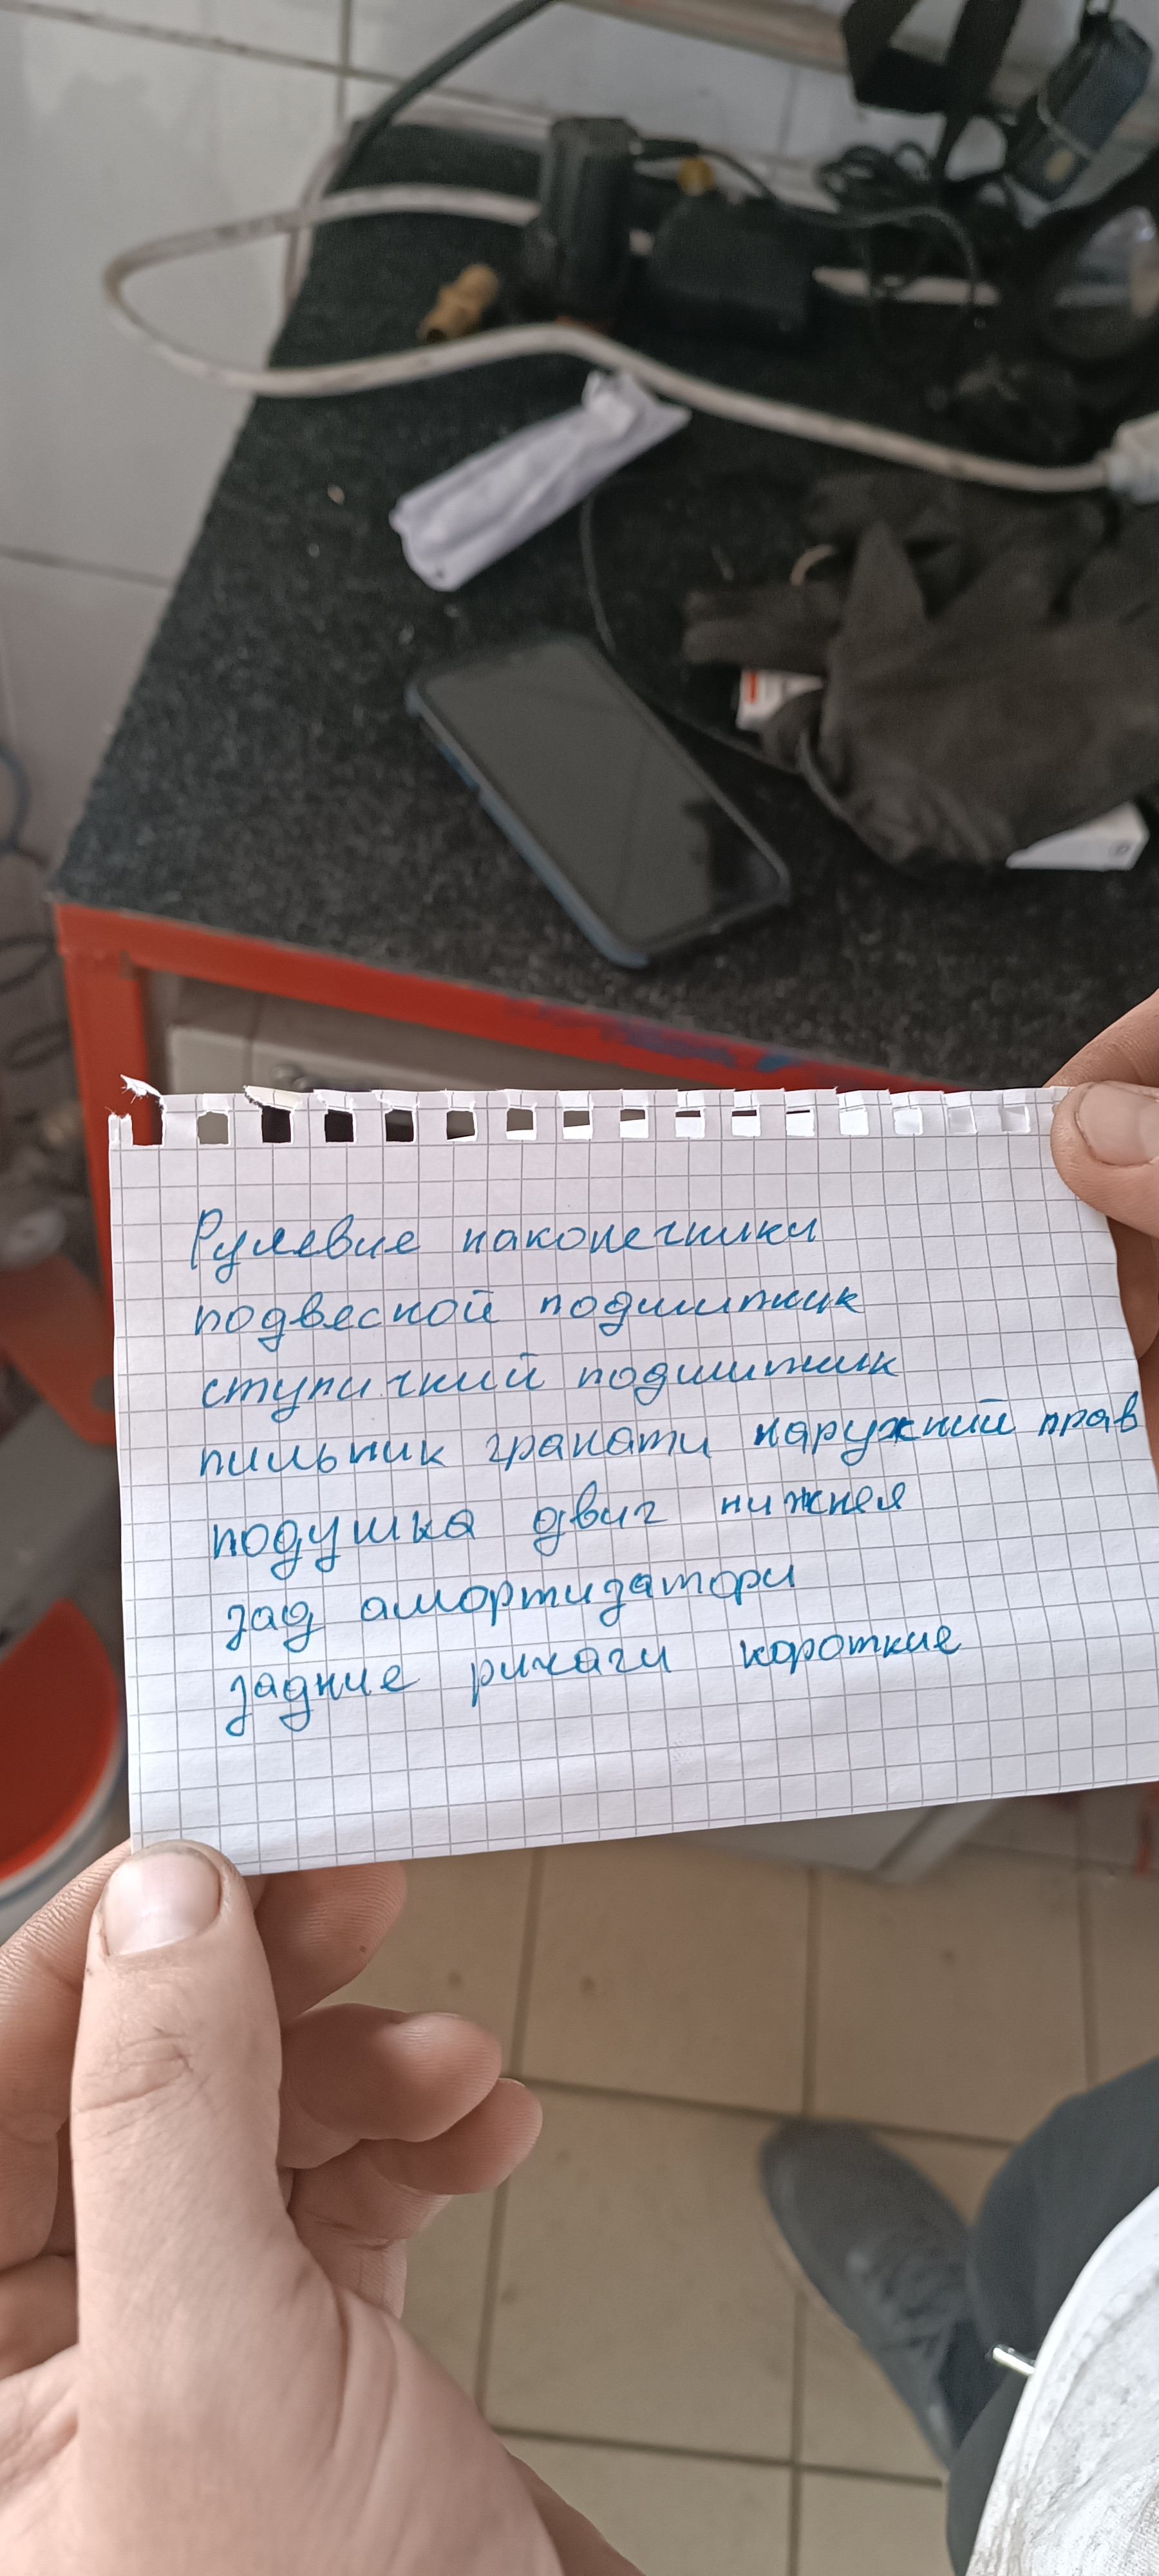 Рулевие наконечники
подвесной подшипник
ступичний подшипник
пильник гранати наружний прав
подушка двиг нижнея
зад амортизатори
задние ричаги короткие